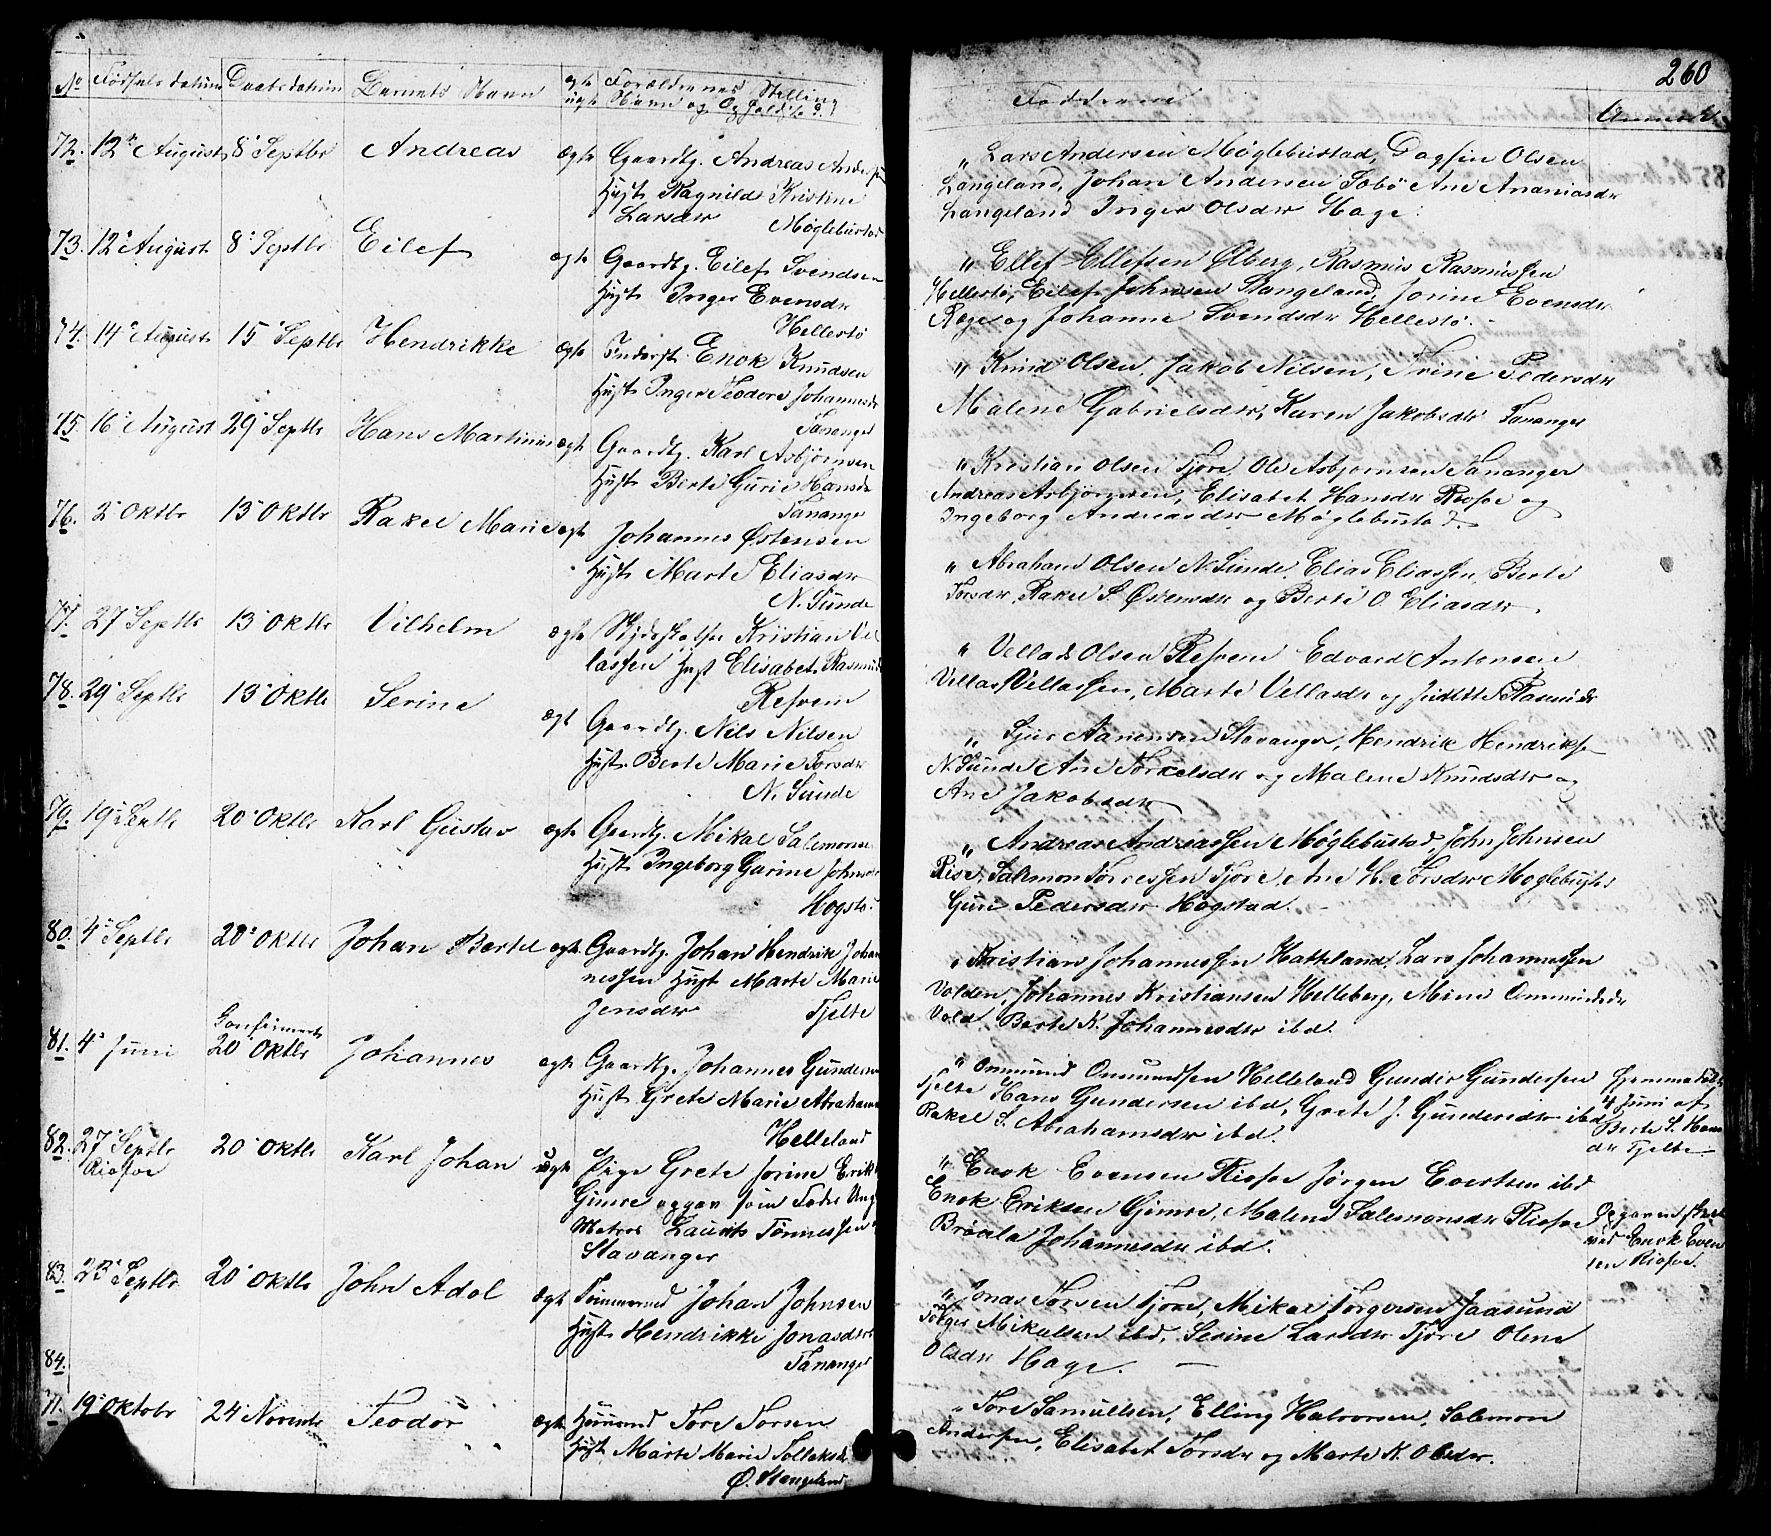 260
No Födsels datum Daabs datum Barnets Navn ægte uægte Forældrenes Stilling Navn og Faddrene Anmærk.
72. 12 August 8 Septbr Andreas ægte Gaardbg. Andreas Ander
Hust Ragnilda Kristine
Larsdtr Møglebustad
„ Lars Andersen Møglebustad, Dagfin Olsen
Langeland, Johan Andersen Jobø Ane Ananiasdr
Langeland Inger Olsdtr Hage.
73. 12 August 8 Septbr Eilef ægte Gaardbg. Eilef Svendsen
Hust Inger Evensdr
Hellestø
„ Ellef Ellefsen Ølberg, Rasmus Rasmussen
Hellestø, Eilef Johnsen Stangeland, Jorine Evensdr
Ræge og Johanne Svendsdr Hellestø.
74. 14 August 15 Septbr Hendrikke ægte Inderst. Enok Knudsen
Hust Inger Teodore Johannesdr
Tananger
„ Knud Olsen, Jakob Nilsen, Trine Pedersdr
Malene Gabrielsdr, Karen Jakobsdr Tananger
75. 16 August 29 Septbr Hans Martinus ægte Gaardbg. Karl Asbjørnsen
Hust Berte Gurie Hansdr
Tananger
„ Kristian Olsen Tjore Ole Asbjørnsen Tananger
Andreas Asbjørnsen, Elisabet Hansdr Risfoe og
Ingeborg Andreasdr Møglebustad.
76. 2 Oktbr 13 Oktbr Rakel Marie ægte Johannes Østensen
Hust Marte Eliasdr
N. Sunde
„ Abraham Olsen N. Sunde, Elias Eliassen, Berte
Torsdr, Rakel S. Østensdr og Berte O. Eliasdr.
77. 27 Septbr 13 Oktbr Vilhelm ægte Kristian Vel
lassen Hust Elisabet Rasmusdr
Refvem
„ Vellads Olsen Refvem Edvard Antonsen
Vellas Vellassen, Marte Vellasdr og Juditte Rasmusdr
78. 29 Septbr 13 Oktbr Serine ægt Gaardbg. Nils Nilsen
Hust. Berte Marie Torsdr
N. Sunde
„ Sjur Aanensen Stavanger, Hendrik Hendriksen
N. Sunde Ane Torkelsdr og Malene Knudsdr og
Ane Jakobsdr
79. 19 Septbr 20 Oktbr Karl Gustav ægte Gaardbg. Mikal Salemonsen
Hust Ingeborg Garine Johnsdr
Hogstad
„ Andreas Andreassen Møglebustad, John Johnsen
Rise, Salemon Torressen Tjore, Ane H. Torsdr Moglebust
Guri Pedersdr Hogstad.
80. 4 Septbr 20 Oktbr Johan Bertel ægte Gaardbg. Johan Hendrik Johan
nessen Hust Marte Marie
Jensdr Tjelte
„ Kristian Johannessen Hatteland, Lars Johannessen
Volden, Johannes Kristiansen Helleberg, Mine Ommundsdr
Vold Berte K. Johannesdr ibd.
81. 4 Juni Confirmert 20 Oktbr Johannes ægte Gaardbg. Johannes Gundersen
Hust Grete Marie Abrahamsdr
Helleland
„ Ommund Ommundsen Helleland Gunder Gundersen
Tjelte Hans Gundersen ibd, Grete J. Gundersdr ibd
Rakel S. Abrahamsdr ibd.
Hjemmedøbt
4 Juni af
Berte S. Hans
dr Tjelte
82. 27 Septbr Risfoe 20 Oktbr Karl Johan uægte Pige Grete Jorine Eriks
Gimre opgav som Fader Ung
Matros Laurits Tønnessen
Stavanger
„ Enok Evensen Risfoe Jørgen Evertsen ibd
Enok Eriksen Gimre, Malene Salemonsdr Risfoe
Johannesdr ibd.
Opgaven
ved Enok Even
sen Risfoe.
83. 23 Septbr 20 Oktbr John Adol ægte Tømmermd Johan Johnsen
Hust Hendrikke Jonasdr
Tananger
„ Jonas Torsen Tjore, Mikal Torgersen Jaasund
Torger Mikalsen ibd, Serine Larsdr Tjore Olene
Olsdr Hage.
84.
71. 19 Oktobr 24 Novembr Teodor ægte Huusmd Tore Torsen
Hust Marte Marie Tollaksdr
Ø. Stangeland
„ Tore Samuelsen, Elling Halvorsen, Salemon
Andersen, Elisabet Torsdr og Marte K. Olsdr.